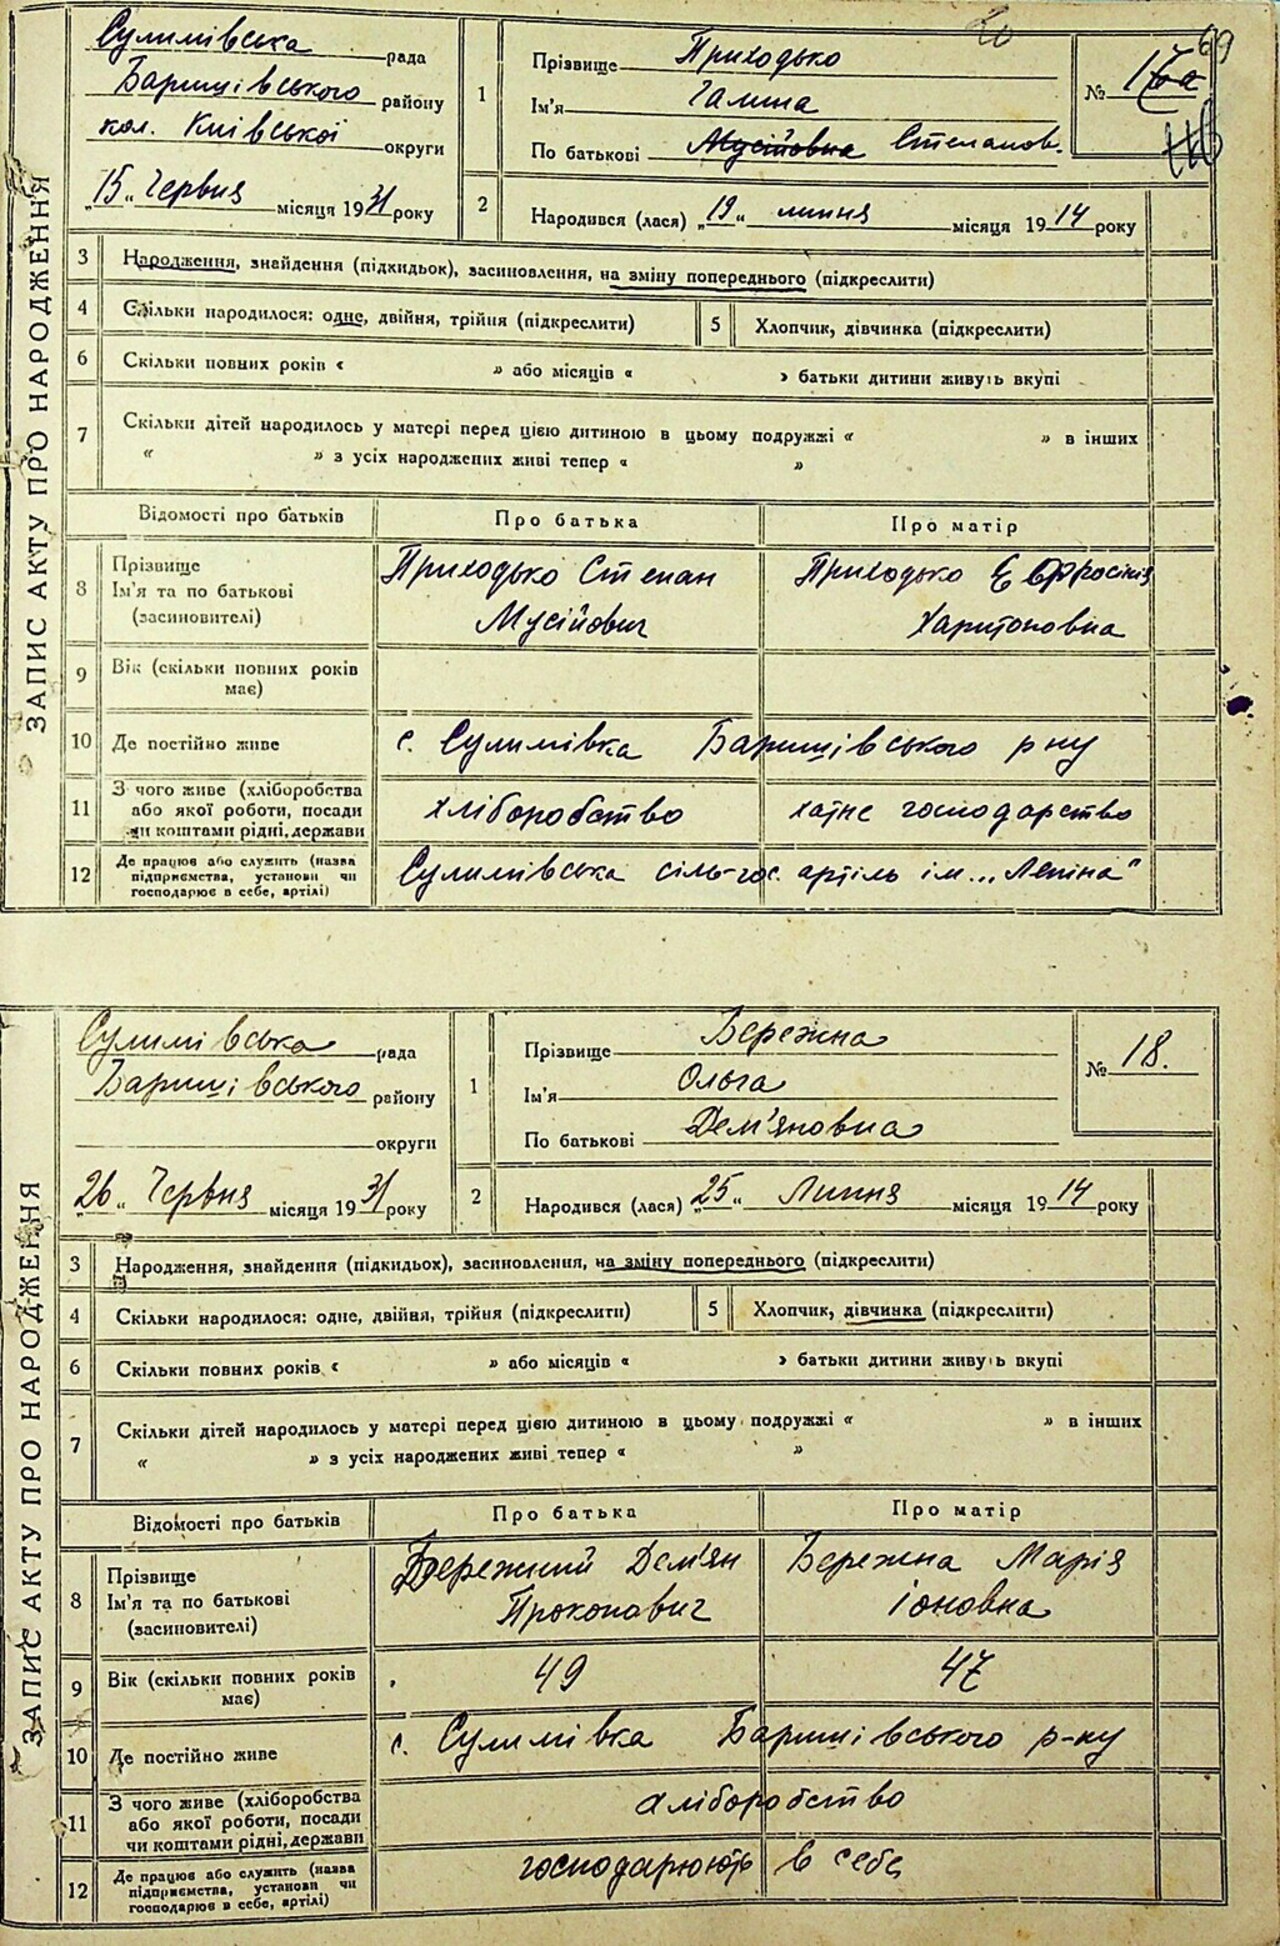 69
ЗАПИС АКТУ ПРО НАРОДЖЕННЯ
Сулимівська рада
Баришівського району
кол. Київської округи
„15“ Червня місяця 1931 року
1
Прізвище Приходько
Ім'я Галина
По батькові Мусіївна Степанов.
№ 17
2 Народився (лася) „19“ липня місяця 1914 року
3 Народження, знайдення (підкидьок), засиновлення, на зміну попереднього (підкреслити)
4 Скільки народилося: одне, двійня, трійня (підкреслити) 5 Хлопчик, дівчинка (підкреслити)
6 Скільки повних років « » або місяців « » батьки дитини живуть вкупі
7 Скільки дітей народилось у матері перед цією дитиною в цьому подружжі « » в інших
« » з усіх народжених живі тепер « »
Відомості про батьків Про батька Про матір
8 Прізвище Ім'я та по батькові (засиновителі)
Приходько Степан Приходько Ефросінія
Мусійович Харитоновна
9 Вік (скільки повних років має)
10 Де постійно живе с. Сулимівка Баришівського р ну
11 З чого живе (хліборобства або якої роботи, посади чи коштами рідні, держави хліборобство хатнє господарство
12 Де працює або служить (назва підприємства, установи чи господарює в себе, артілі) Сулимівська сіль-гос. артіль ім... „Леніна“
ЗАПИС АКТУ ПРО НАРОДЖЕННЯ
Сулимівська рада
Баришівського району
округи
„26“ Червня місяця 1931 року
1
Прізвище Бережна
Ім'я Ольга
По батькові Дем'яновна
№ 18.
2 Народився (лася) „25“ Липня місяця 1914 року
3 Народження, знайдення (підкидьох), засиновлення, на зміну попереднього (підкреслити)
4 Скільки народилося: одне, двійня, трійня (підкреслити) 5 Хлопчик, дівчинка (підкреслити)
6 Скільки повних років « » або місяців « » батьки дитини живуть вкупі
7 Скільки дітей народилось у матері перед цією дитиною в цьому подружжі « » в інших
« » з усіх народжених живі тепер « »
Відомості про батьків Про батька Про матір
8 Прізвище Ім'я та по батькові (засиновителі)
Бережний Дем'ян Бережна Марія
Прокопович Іоновна
9 Вік (скільки повних років має) 49 47
10 Де постійно живе с. Сулимівка Баришівського р-ну
11 З чого живе (хліборобства або якої роботи, посади чи коштами рідні, держави хліборобство
12 Де працює або служить (назва підприємства, установи чи господарює в себе, артілі) господарюють в себе